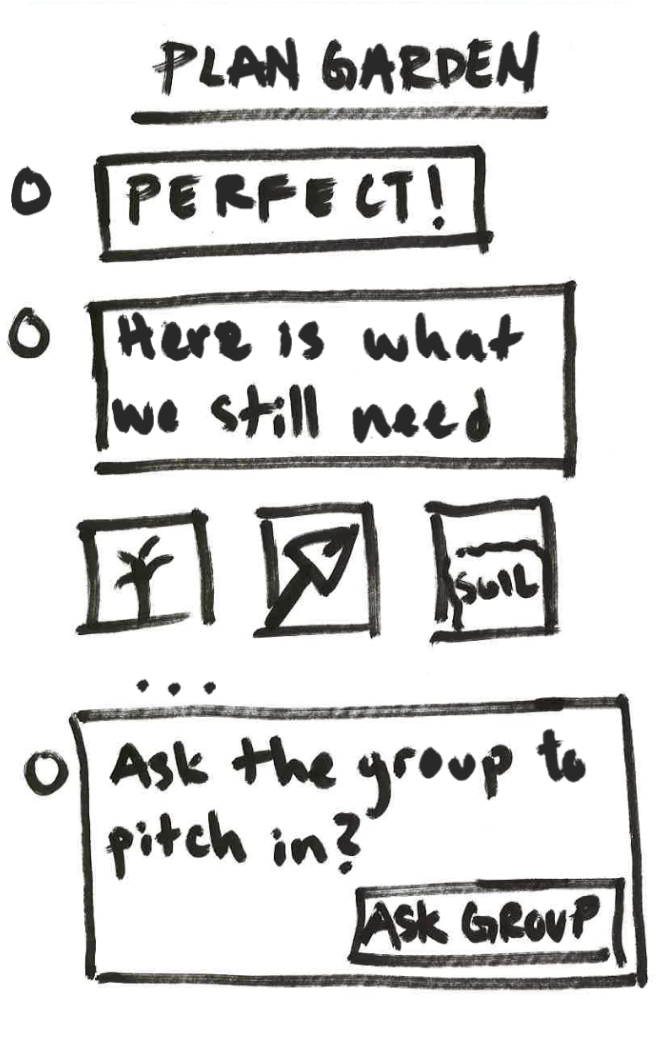 PLAN GARDEN
PERFECT!
Here is what
we still need
SOIL
...
Ask the group to
pitch in?
ASK GROUP